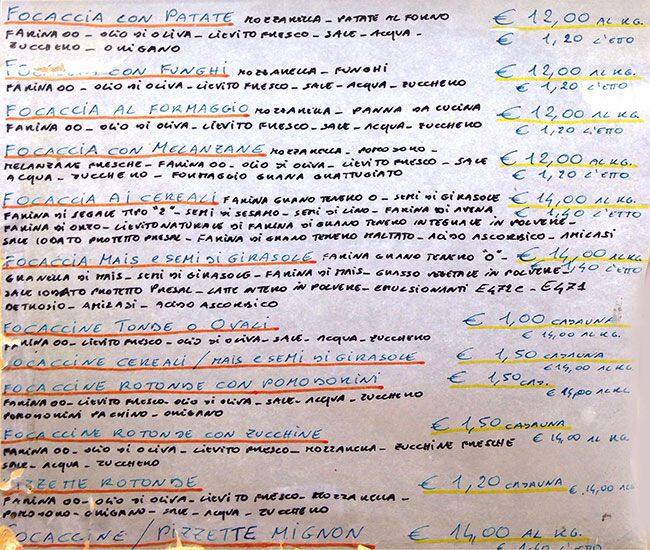 FOCACCIA CON PATATE MOZZARELLA - PATATE AL FORNO € 12,00 AL KG.
FARINA 00 - OLIO DI OLIVA - LIEVITO FRESCO - SALE - ACQUA - € 1,20 L'ETTO
ZUCCHERO - ORIGANO
CON FUNGHI MOZZARELLA - FUNGHI € 12,00 AL KG.
FARINA 00 - OLIO DI OLIVA - LIEVITO FRESCO - SALE - ACQUA - ZUCCHERO € 1,20 L'ETTO
FOCACCIA AL FORMAGGIO MOZZARELLA - PANNA DA CUCINA € 12,00 AL KG.
FARINA 00 - OLIO DI OLIVA - LIEVITO FRESCO - SALE - ACQUA - ZUCCHERO € 1,20 L'ETTO
FOCACCIA CON MELANZANE MOZZARELLA - POMODORO - € 12,00 AL KG.
MELANZANE FRESCHE - FARINA 00 - OLIO DI OLIVA - LIEVITO FRESCO - SALE € 1,20 L'ETTO
ACQUA - ZUCCHERO - FORMAGGIO GRANA GRATTUGIATO
FOCACCIA AI CEREALI FARINA GRANO TENERO 0 - SEMI DI GIRASOLE € 14,00 AL KG.
FARINA DI SEGALE TIPO "2" - SEMI DI SESAMO - SEMI DI LINO - FARINA DI AVENA € 1,40 L'ETTO
FARINA DI ORZO - LIEVITO NATURALE DI FARINA DI GRANO TENERO INTEGRALE IN POLVERE -
SALE IODATO PROTETTO PRESAL - FARINA DI GRANO TENERO MALTATO - ACIDO ASCORBICO - AMILASI
FOCACCIA MAIS E SEMI DI GIRASOLE FARINA GRANO TENERO "0" - € 14,00 AL KG.
GRANELLA DI MAIS - SEMI DI GIRASOLE - FARINA DI MAIS - GRASSO VEGETALE IN POLVERE - € 1,40 L'ETTO
SALE IODATO PROTETTO PRESAL - LATTE INTERO IN POLVERE - EMULSIONANTI E472E - E471
DETROSIO - AMILASI - ACIDO ASCORBICO
FOCACCINE TONDE O OVALI € 1,00 CADAUNA
FARINA 00 - LIEVITO FRESCO - OLIO DI OLIVA - SALE - ACQUA - ZUCCHERO € 14,00 AL KG.
FOCACCINE CEREALI / MAIS E SEMI DI GIRASOLE € 1,50 CADAUNA
€ 14,00 AL KG.
FOCACCINE ROTONDE CON POMODORINI € 1,50 CAD.
FARINA 00 - LIEVITO FRESCO - OLIO DI OLIVA - SALE - ACQUA - ZUCCHERO € 14,00 AL KG.
POMODORINI PACHINO - ORIGANO
FOCACCINE ROTONDE CON ZUCCHINE € 1,50 CADAUNA
FARINA 00 - OLIO DI OLIVA - LIEVITO FRESCO - MOZZARELLA - ZUCCHINE FRESCHE € 14,00 AL KG.
SALE - ACQUA - ZUCCHERO
PIZZETTE ROTONDE € 1,20 CADAUNA € 14,00 AL KG.
FARINA 00 - OLIO DI OLIVA - LIEVITO FRESCO - MOZZARELLA -
POMODORO - ORIGANO - SALE - ACQUA - ZUCCHERO
FOCACCINE / PIZZETTE MIGNON € 14,00 AL KG.
€ 1,40 L'ETTO